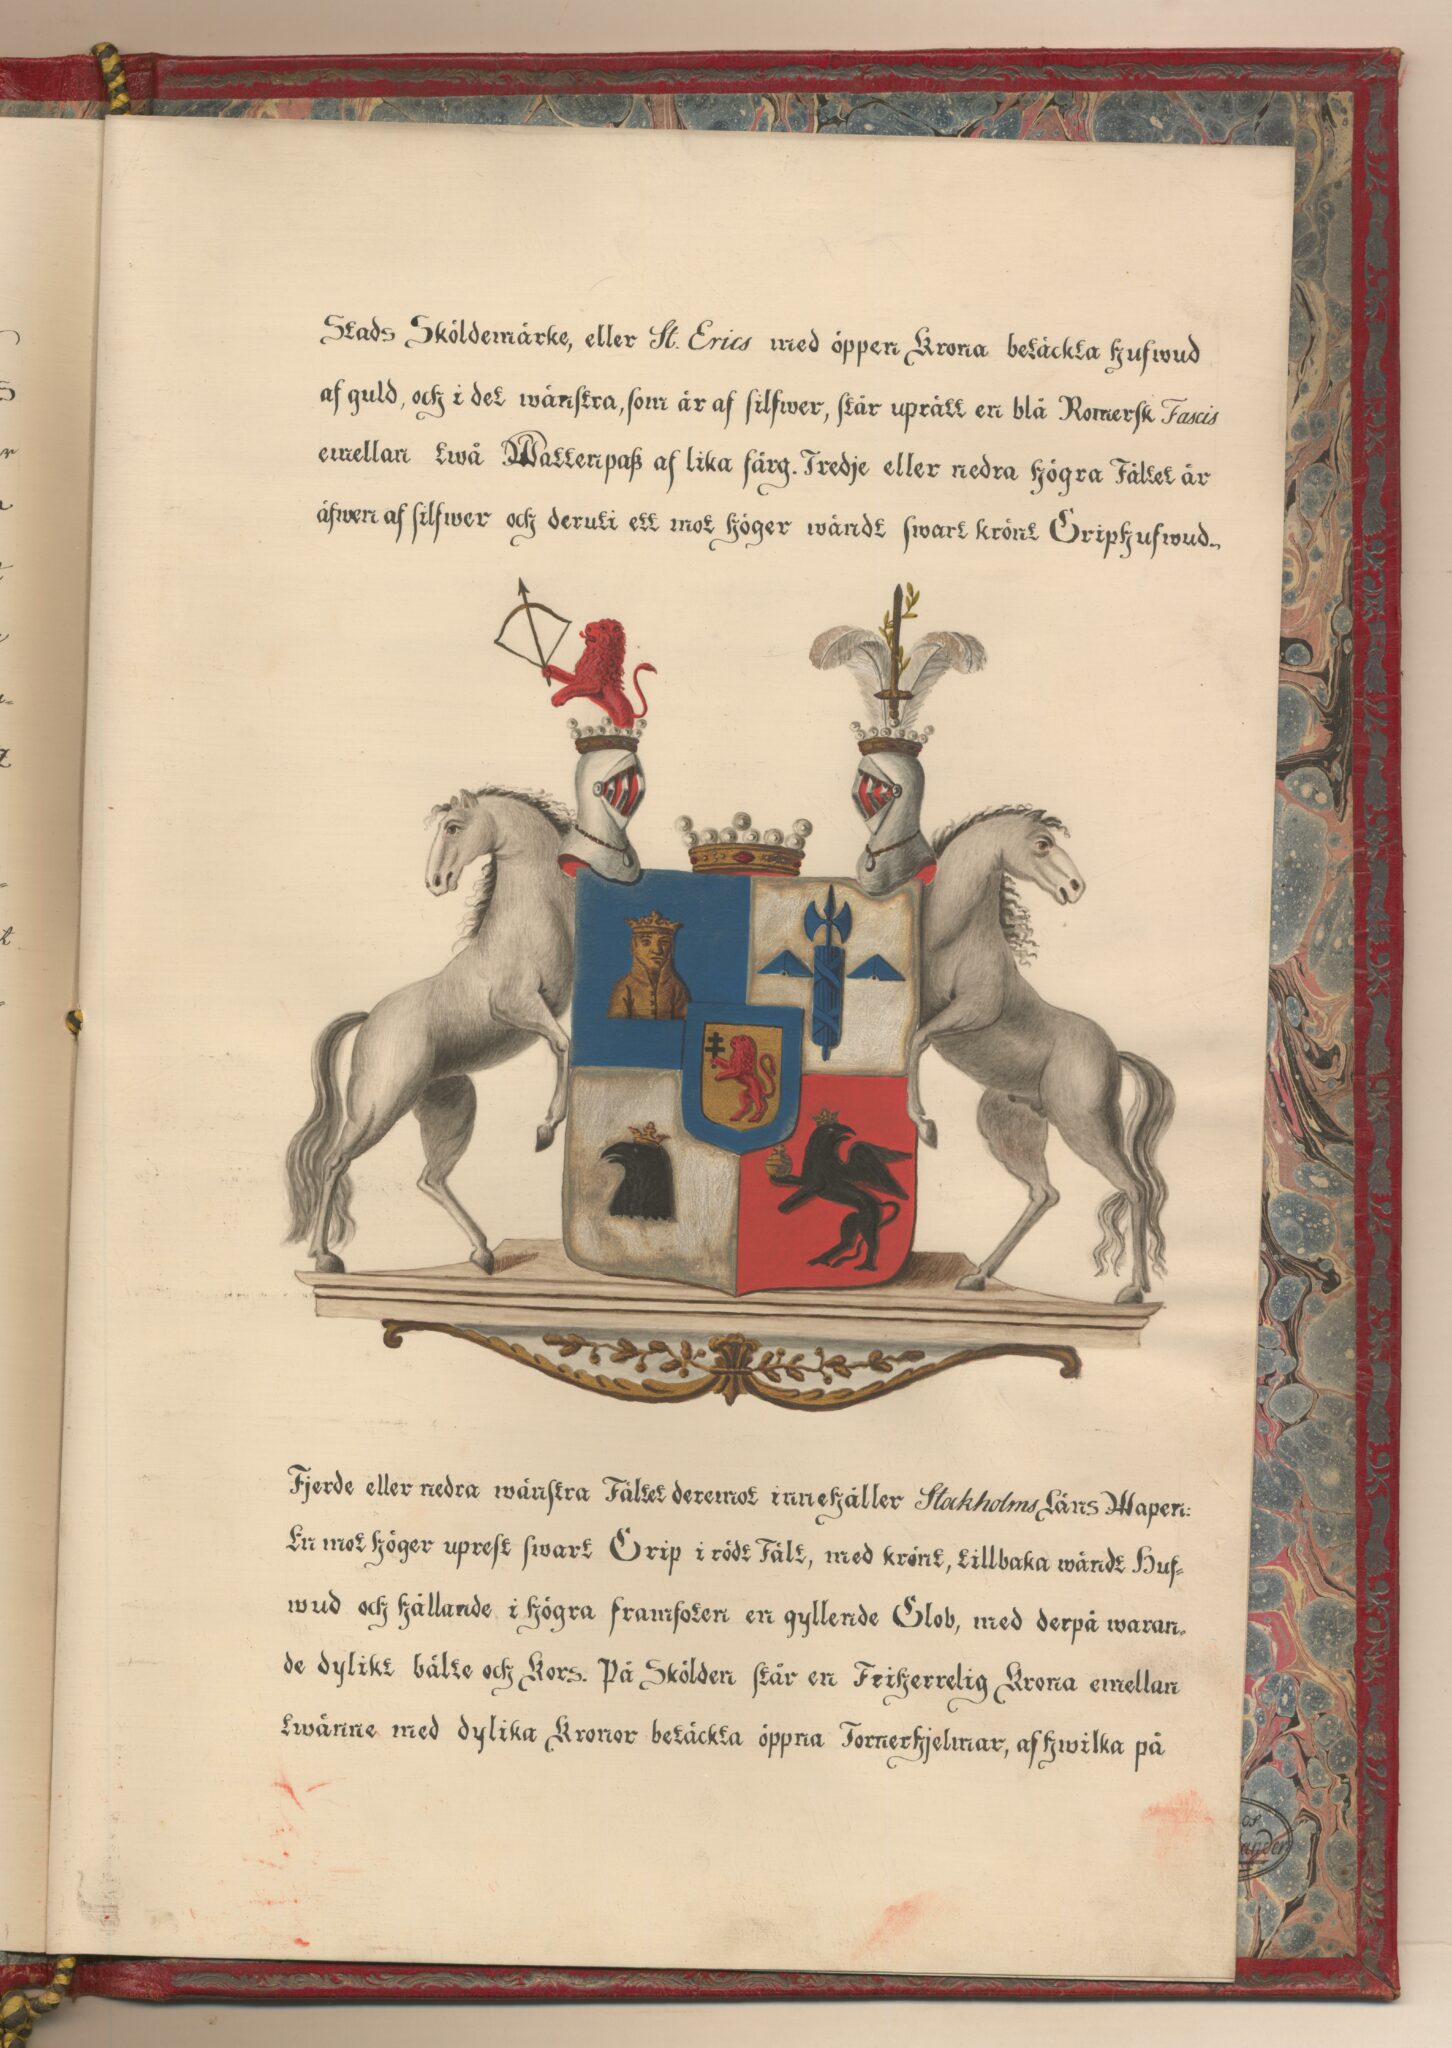 Stads Sköldemärke, eller St. Erics med öppen Krona betäckta hufwud
af guld, och i det wänstra, som är af silfwer, står uprätt en blå Romersk Fascis
emellan twå Wattenpaß af lika färg. Tredje eller nedra högra Fältet är
äfwen af silfwer och deruti ett mot höger wändt swart krönt Griphufwud.
Fjerde eller nedra wänstra Fältet deremot innehåller Stockholms Läns Wapen:
En mot höger uprest swart Grip i rödt Fält, med krönt, tillbaka wändt Huf=
wud och hållande i högra framfoten en gyllende Glob, med derpå waran=
de dylikt bälte och Kors. På Skölden står en Friherrelig Krona emellan
twänne med dylika Kronor betäckta öppna Tornerhjelmar, af hwilka på